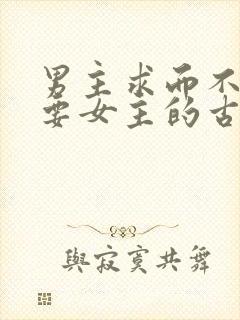 男主求而不
要女主的古
與寂寞共舞